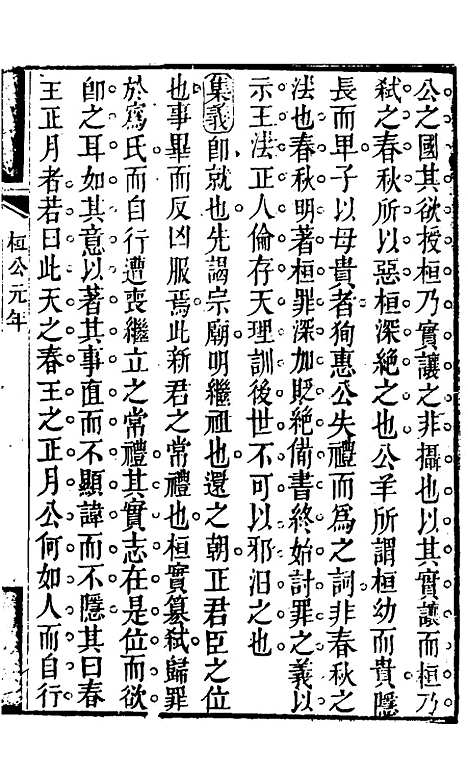 公之國其欲授桓乃實讓之非攝也以其實讓而桓乃
弒之春秋所以惡桓深絶之也公羊所謂桓幼而貴隱
長而卑子以母貴者狥惠公失禮而爲之詞非春秋之
法也春秋明著桓罪深加貶絶備書終始討罪之義以
示王法正人倫存天理訓後世不可以邪汨之也
集義卽就也先謁宗廟明繼祖也還之朝正君臣之位
也事畢而反凶服焉此新君之常禮也桓實篡弒歸罪
於寪氏而自行遭喪繼立之常禮其實志在是位而欲
卽之耳如其意以著其事直而不顯諱而不隱其曰春
王正月者若曰此天之春王之正月公何如人而自行
桓公元年